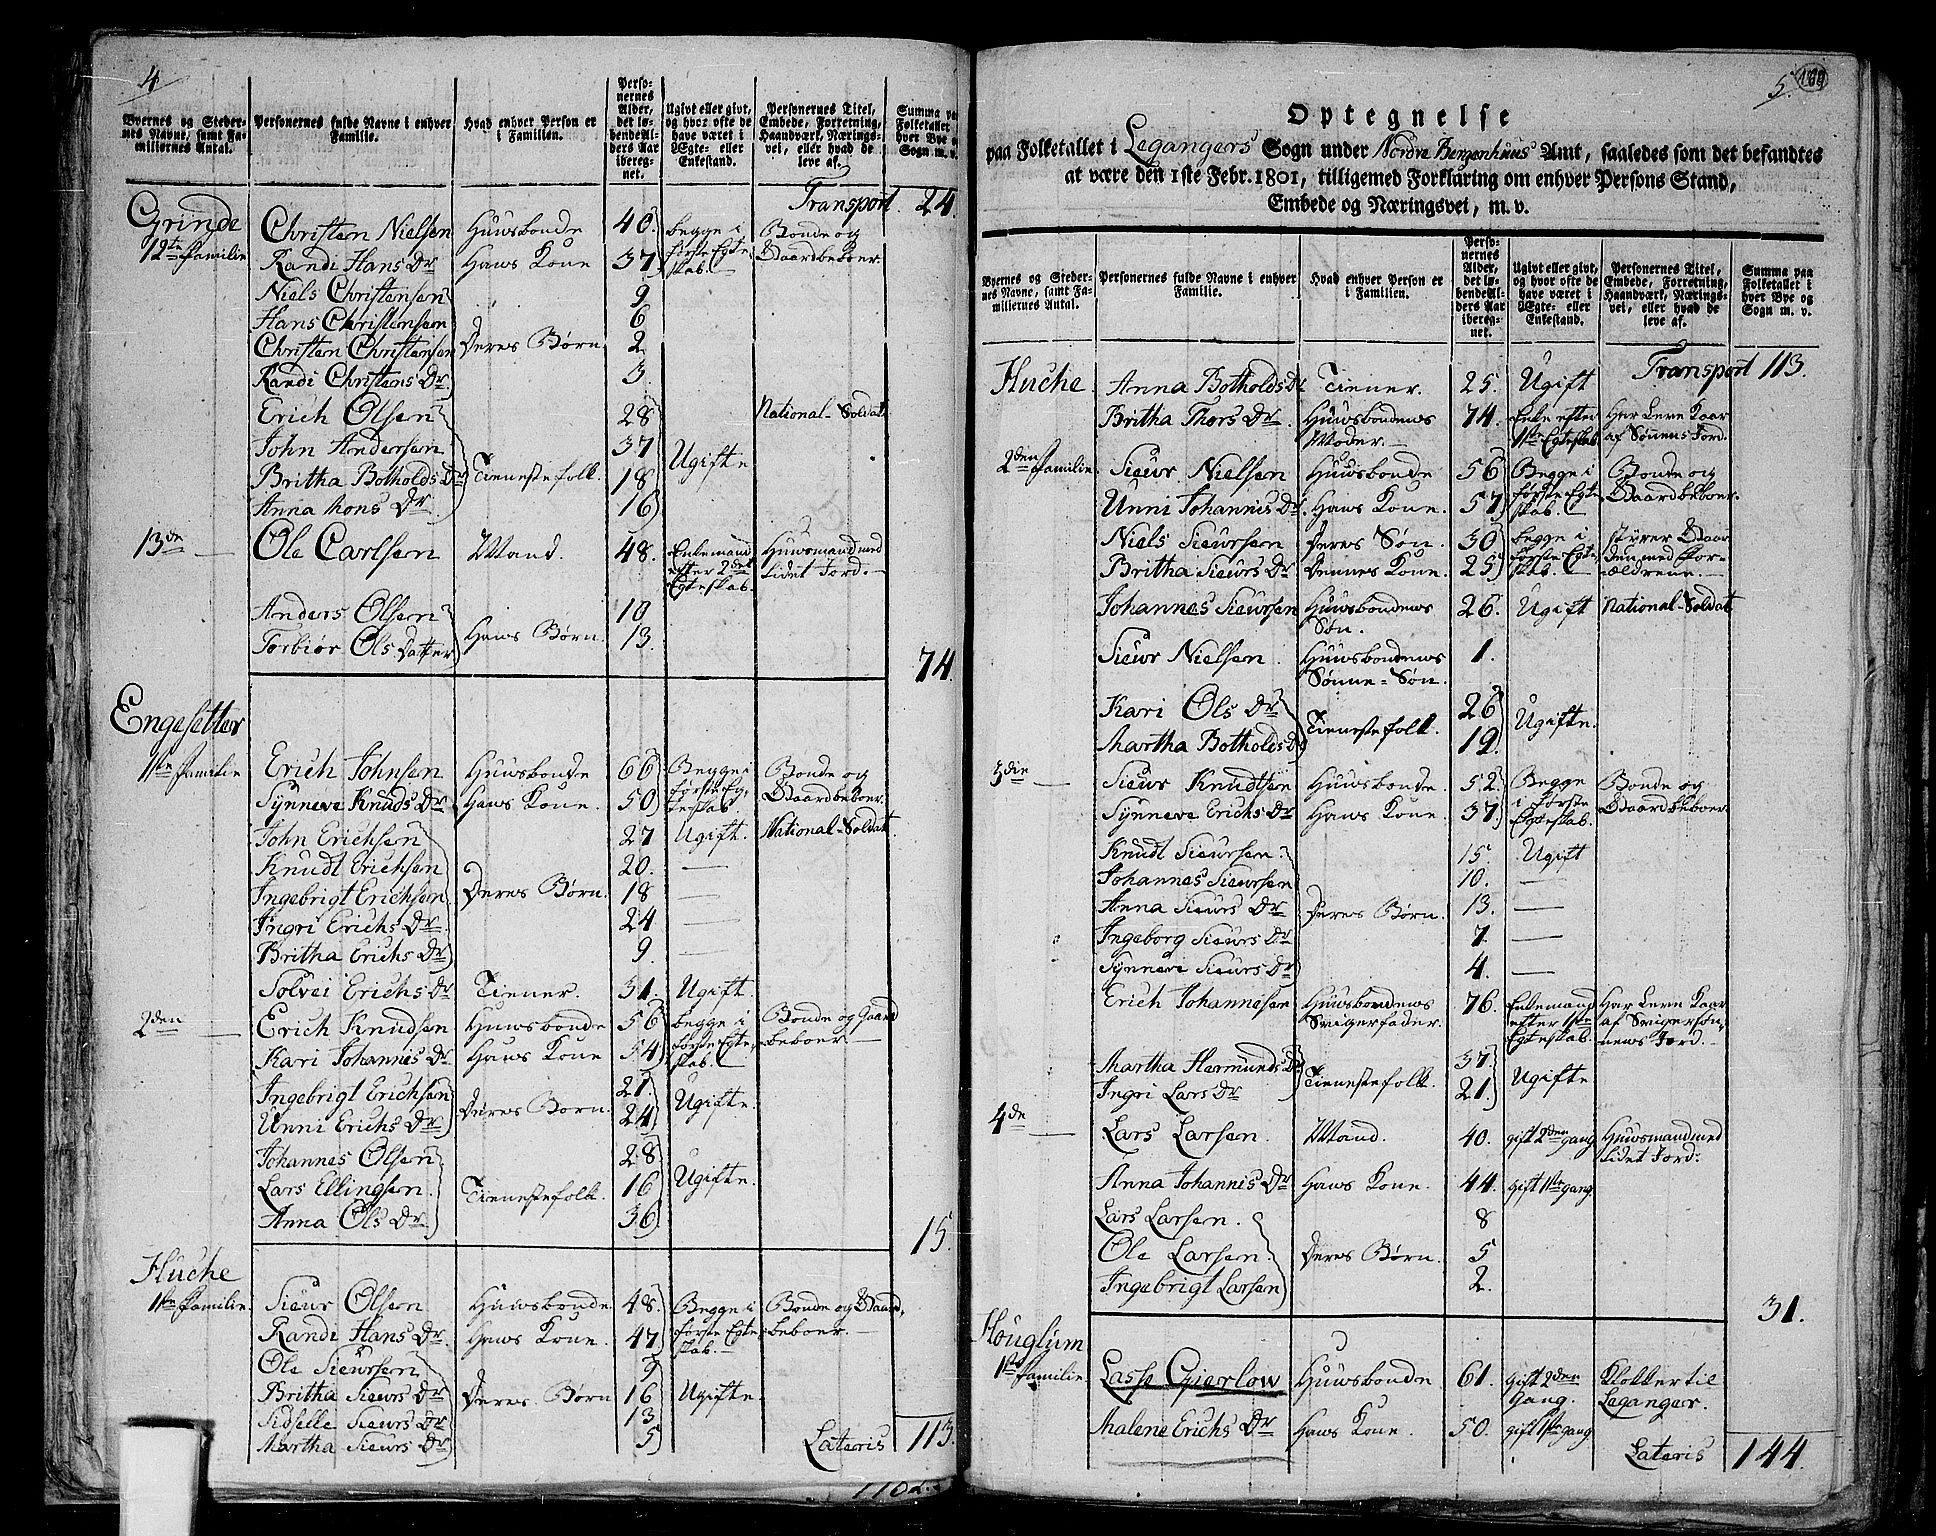 4
Byernes og Stedernes Navne, samt Familiernes Antal.
Personernes fulde Navne i enhver Familie.
Hvad enhver Person er i Familien.
Personernes Alder, det løbende Alders Aar iberegnet.
Ugivt eller givt, og hvor ofte de have været i Ægte- eller Enkestand.
Personernes Titel, Embede, Forretning, Haandværk, Næringsvei, eller hvad de leve af.
Summa paa Folketallet i hver Bye og Sogn m. v.
Transport 24.
Grinde
12te Familie Christen Nielsen Huusbonde 40 begge i første Egteskab. Bonde og Gaardbeboer.
Randi Hans Dr Hans Kone 37
Niels Christensen 9
Hans Christensen 6
Christen Christensen Deres Børn 2
Randi Christens Dr 3.
Erich Olsen 28 National-Soldat
John Andersen 37 Ugifte
Britha Botholds Dr Tienestefolk. 18
Anna Mons Dr 16
13de — Ole Carlsen Mand. 48. Enkemand efter 2det Egteskab. Huusmand med lidet Jord.
Anders Olsen 10
Torbiør Ols Datter Hans Børn. 13.
74.
Engesetter
1ste Familie Erich Johnsen Huusbonde 66 Begge i første Egteskab Bonde og Gaardbeboer.
Synneve Knuds Dr Hans Kone. 50
John Erichsen 27 Ugift. National-Soldat.
Knudt Erichsen 20. —
Ingebrigt Erichsen Deres Børn. 18 —
Ingri Erichs Dr 24 —
Britha Erichs Dr 9. —
Solvei Erichs Dr Tiener. 31. Ugift.
2den — Erich Knudsen Huusbonde 56 begge i første Egteskab. Bonde og Gaardbeboer.
Kari Johannis Dr Hans Kone 54
Ingebrigt Erichsen 21. Ugifte.
Unni Erichs Dr Deres Børn. 24
Johannes Olsen 28.
Lars Ellingsen. Tienestefolk. 16 Ugifte.
Anna Ols Dr 36
15.
Huche
1ste Familie Siëur Olsen Huusbonde 48. Begge i første Egteskab. Bonde og Gaardbeboer.
Randi Hans Dr Hans Kone. 47
Ole Sieursen 9
Britha Sieurs Dr Deres Børn 16 Ugifte.
Sidselle Sieurs Dr 13
Martha Sieurs Dr 5
Lateris 113.
5. 169
Optegnelse
paa Folketallet i Legangers Sogn under Nordre Bergenhuus Amt, saaledes som det befandtes
at være den 1ste Febr. 1801, tilligemed Forklaring om enhver Persons Stand,
Embede og Næringsvei, m. v.
Byernes og Stedernes Navne, samt Familiernes Antal.
Personernes fulde Navne i enhver Familie.
Hvad enhver Person er i Familien.
Personernes Alder, det løbende Alders Aar iberegnet.
Ugivt eller givt, og hvor ofte de have været i Ægte- eller Enkestand.
Personernes Titel, Embede, Forretning, Haandværk, Næringsvei, eller hvad de leve af.
Summa paa Folketallet i hver Bye og Sogn m. v.
Transport 113.
Huche. Anna Botholds Dr Tiener. 25. Ugift
Britha Thors Dr. Huusbondens Moder. 74. Enke efter 1ste Egteskab Har Leve Kaar af Sønnens Jord.
2den Familie. Sieur Nielsen Huusbonde 56 Begge i første Egteskab. Bonde og Gaardbeboer.
Unni Johannis Dr. Hans Kone. 57
Niels Sieursen Deres Søn. 30 begge i første Egteskab. styrer Gaarden med Forældrene.
Britha Sieurs Dr Dennes Kone. 25
Johannes Sieursen Huusbondens Søn. 26. Ugift National-Soldat
Sieur Nielsen. Huusbondens Sønne-Søn. 1.
Kari Ols Dr 26 Ugifte.
Martha Botholds Dr Tienestefolk. 19.
3die — Sieur Knudtsen Huusbonde. 52. Begge i første Egteskab. Bonde og Gaardbeboer.
Synneve Erichs Dr Hans Kone. 37
Knudt Sieursen. 15. Ugift
Johannes Sieursen 10. —
Anna Sieurs Dr Deres Børn. 13. —
Ingeborg Sieurs Dr 7. —
Synneve Sieurs Dr 4. —
Erich Johannesen Huusbondens Svigerfader. 76. Enkemand efter 1ste Egteskab. Har Leve Kaar af Svigersønnens Jord.
Martha Hermunds Dr 37. Ugifte
Ingri Lars Dr Tienestefolk. 21.
4de — Lars Larsen. Mand. 40. gift 2den gang Huusmand med lidet Jord.
Anna Johannis Dr Hans Kone. 44. gift 1ste gang
Lars Larsen. 8
Ole Larsen. Deres Børn. 5
Ingebrigt Larsen 2.
31.
Houglum
1ste Familie Lasse Gierlow Huusbonde 61. gift 2den Gang. Klokker til Leganger.
Malene Erichs Dr Hans Kone. 50. gift 1ste gang
Lateris 144.